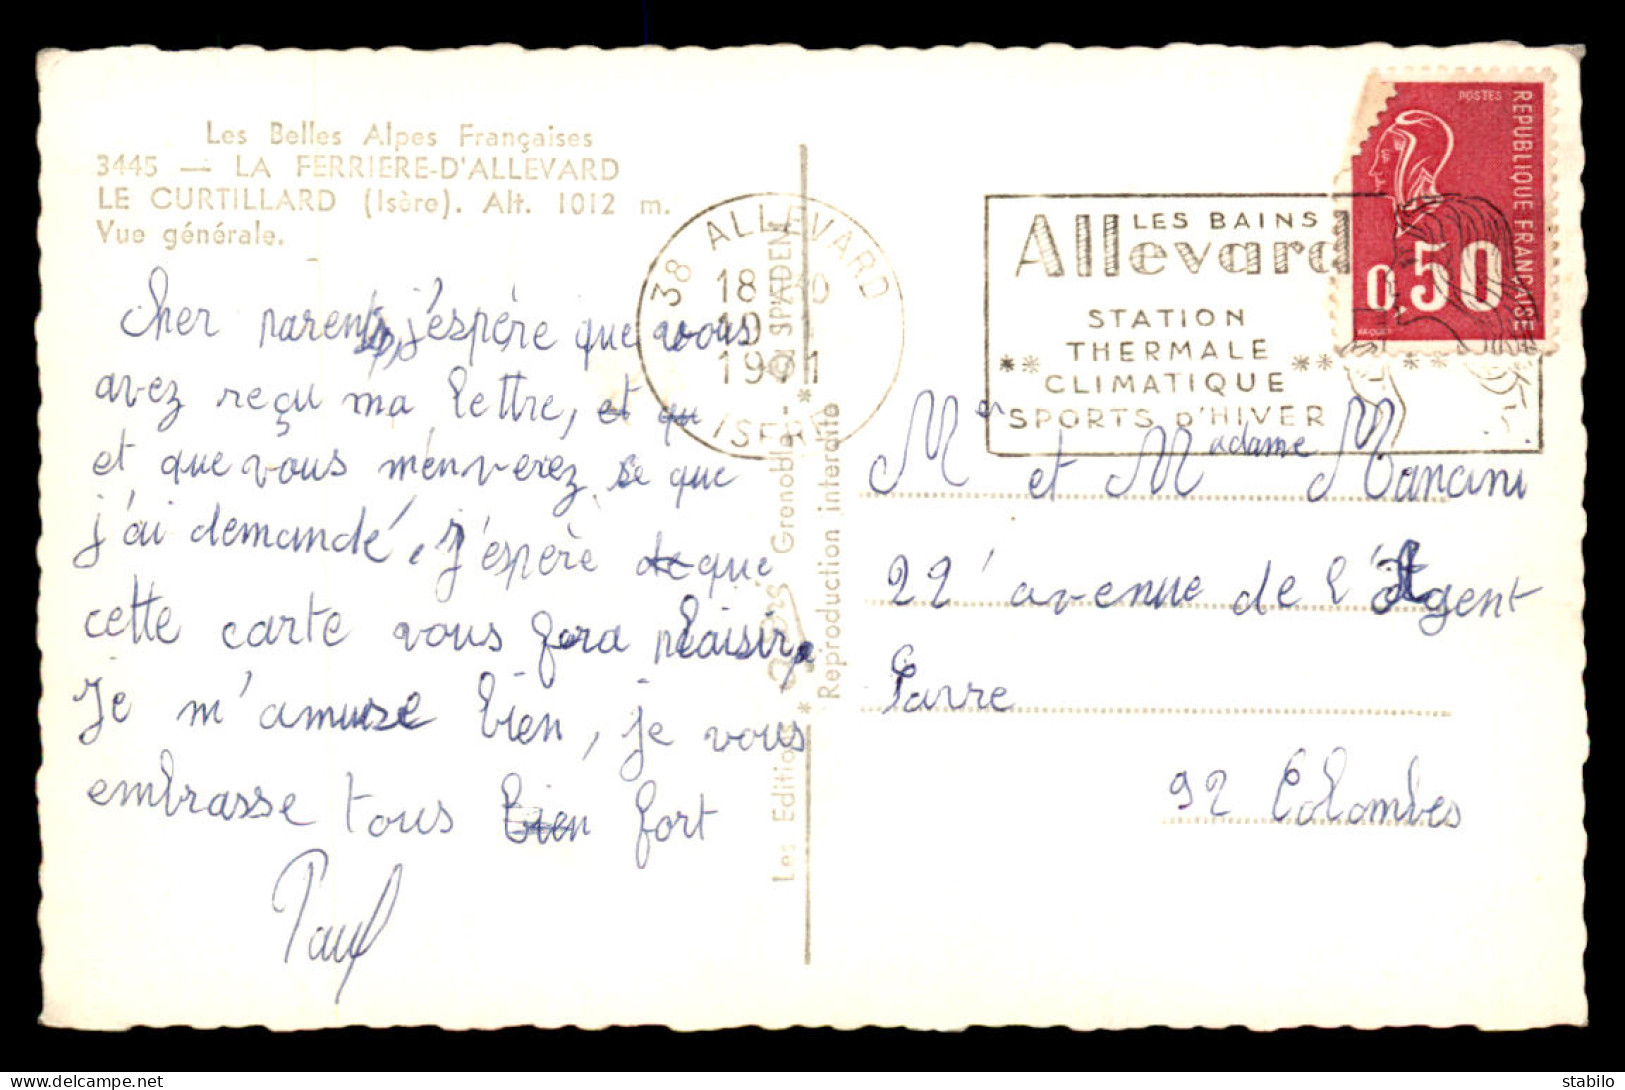 Les Belles Alpes Françaises
3445 — LA FERRIERE-D'ALLEVARD
LE CURTILLARD (Isère). Alt. 1012 m.
Vue générale.
Cher parents, j'espère que vous
avez reçu ma lettre, et qu
et que vous m'enverez se que
j'ai demandé, J'espère de que
cette carte vous fera plaisir,
Je m'amuse bien, je vous
embrasse tous bien fort
Paul
Les Editions * Grenoble - * SPADEM
Reproduction interdite
38 ALLEVARD
18
1971
ISERE
LES BAINS
Allevard
STATION
THERMALE
CLIMATIQUE
SPORTS D'HIVER
POSTES
REPUBLIQUE FRANÇAISE
0,50
Mer et Madame Mancini
22 avenue de l'Agent
Sarre
92 Colombes
delcampe.net
stabilo